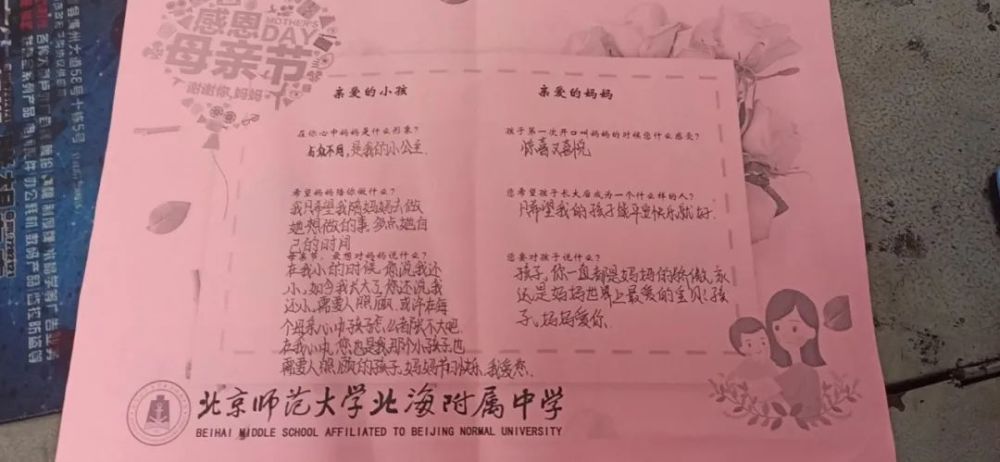 感恩
MOTHER'S
DAY
母亲节
谢谢你,妈妈
亲爱的小孩
在你心中妈妈是什么形象?
与众不同,是我的小公主.
希望妈妈陪你做什么?
我希望我陪妈妈去做
她想做的事,多点她自
己的时间
母亲节,我想对妈妈说什么?
在我小的时候,您说我还
小,如今我长大了,您还说我
还小,需要人照顾,或许在每
个母亲心中孩子怎么都长不大吧
在我心中,您也是我那个小孩子,也
需要人照顾的孩子,妈妈节日快乐,我爱您.
亲爱的妈妈
孩子第一次开口叫妈妈的时候您什么感受?
惊喜又喜悦
您希望孩子长大后成为一个什么样的人?
希望我的孩子健平安快乐就好.
您要对孩子说什么?
孩子,你一直都是妈妈的骄傲,永
远是妈妈世界上最爱的宝贝!孩
子,妈妈爱你.
北京师范大学北海附属中学
BEIHAI MIDDLE SCHOOL AFFILIATED TO BEIJING NORMAL UNIVERSITY